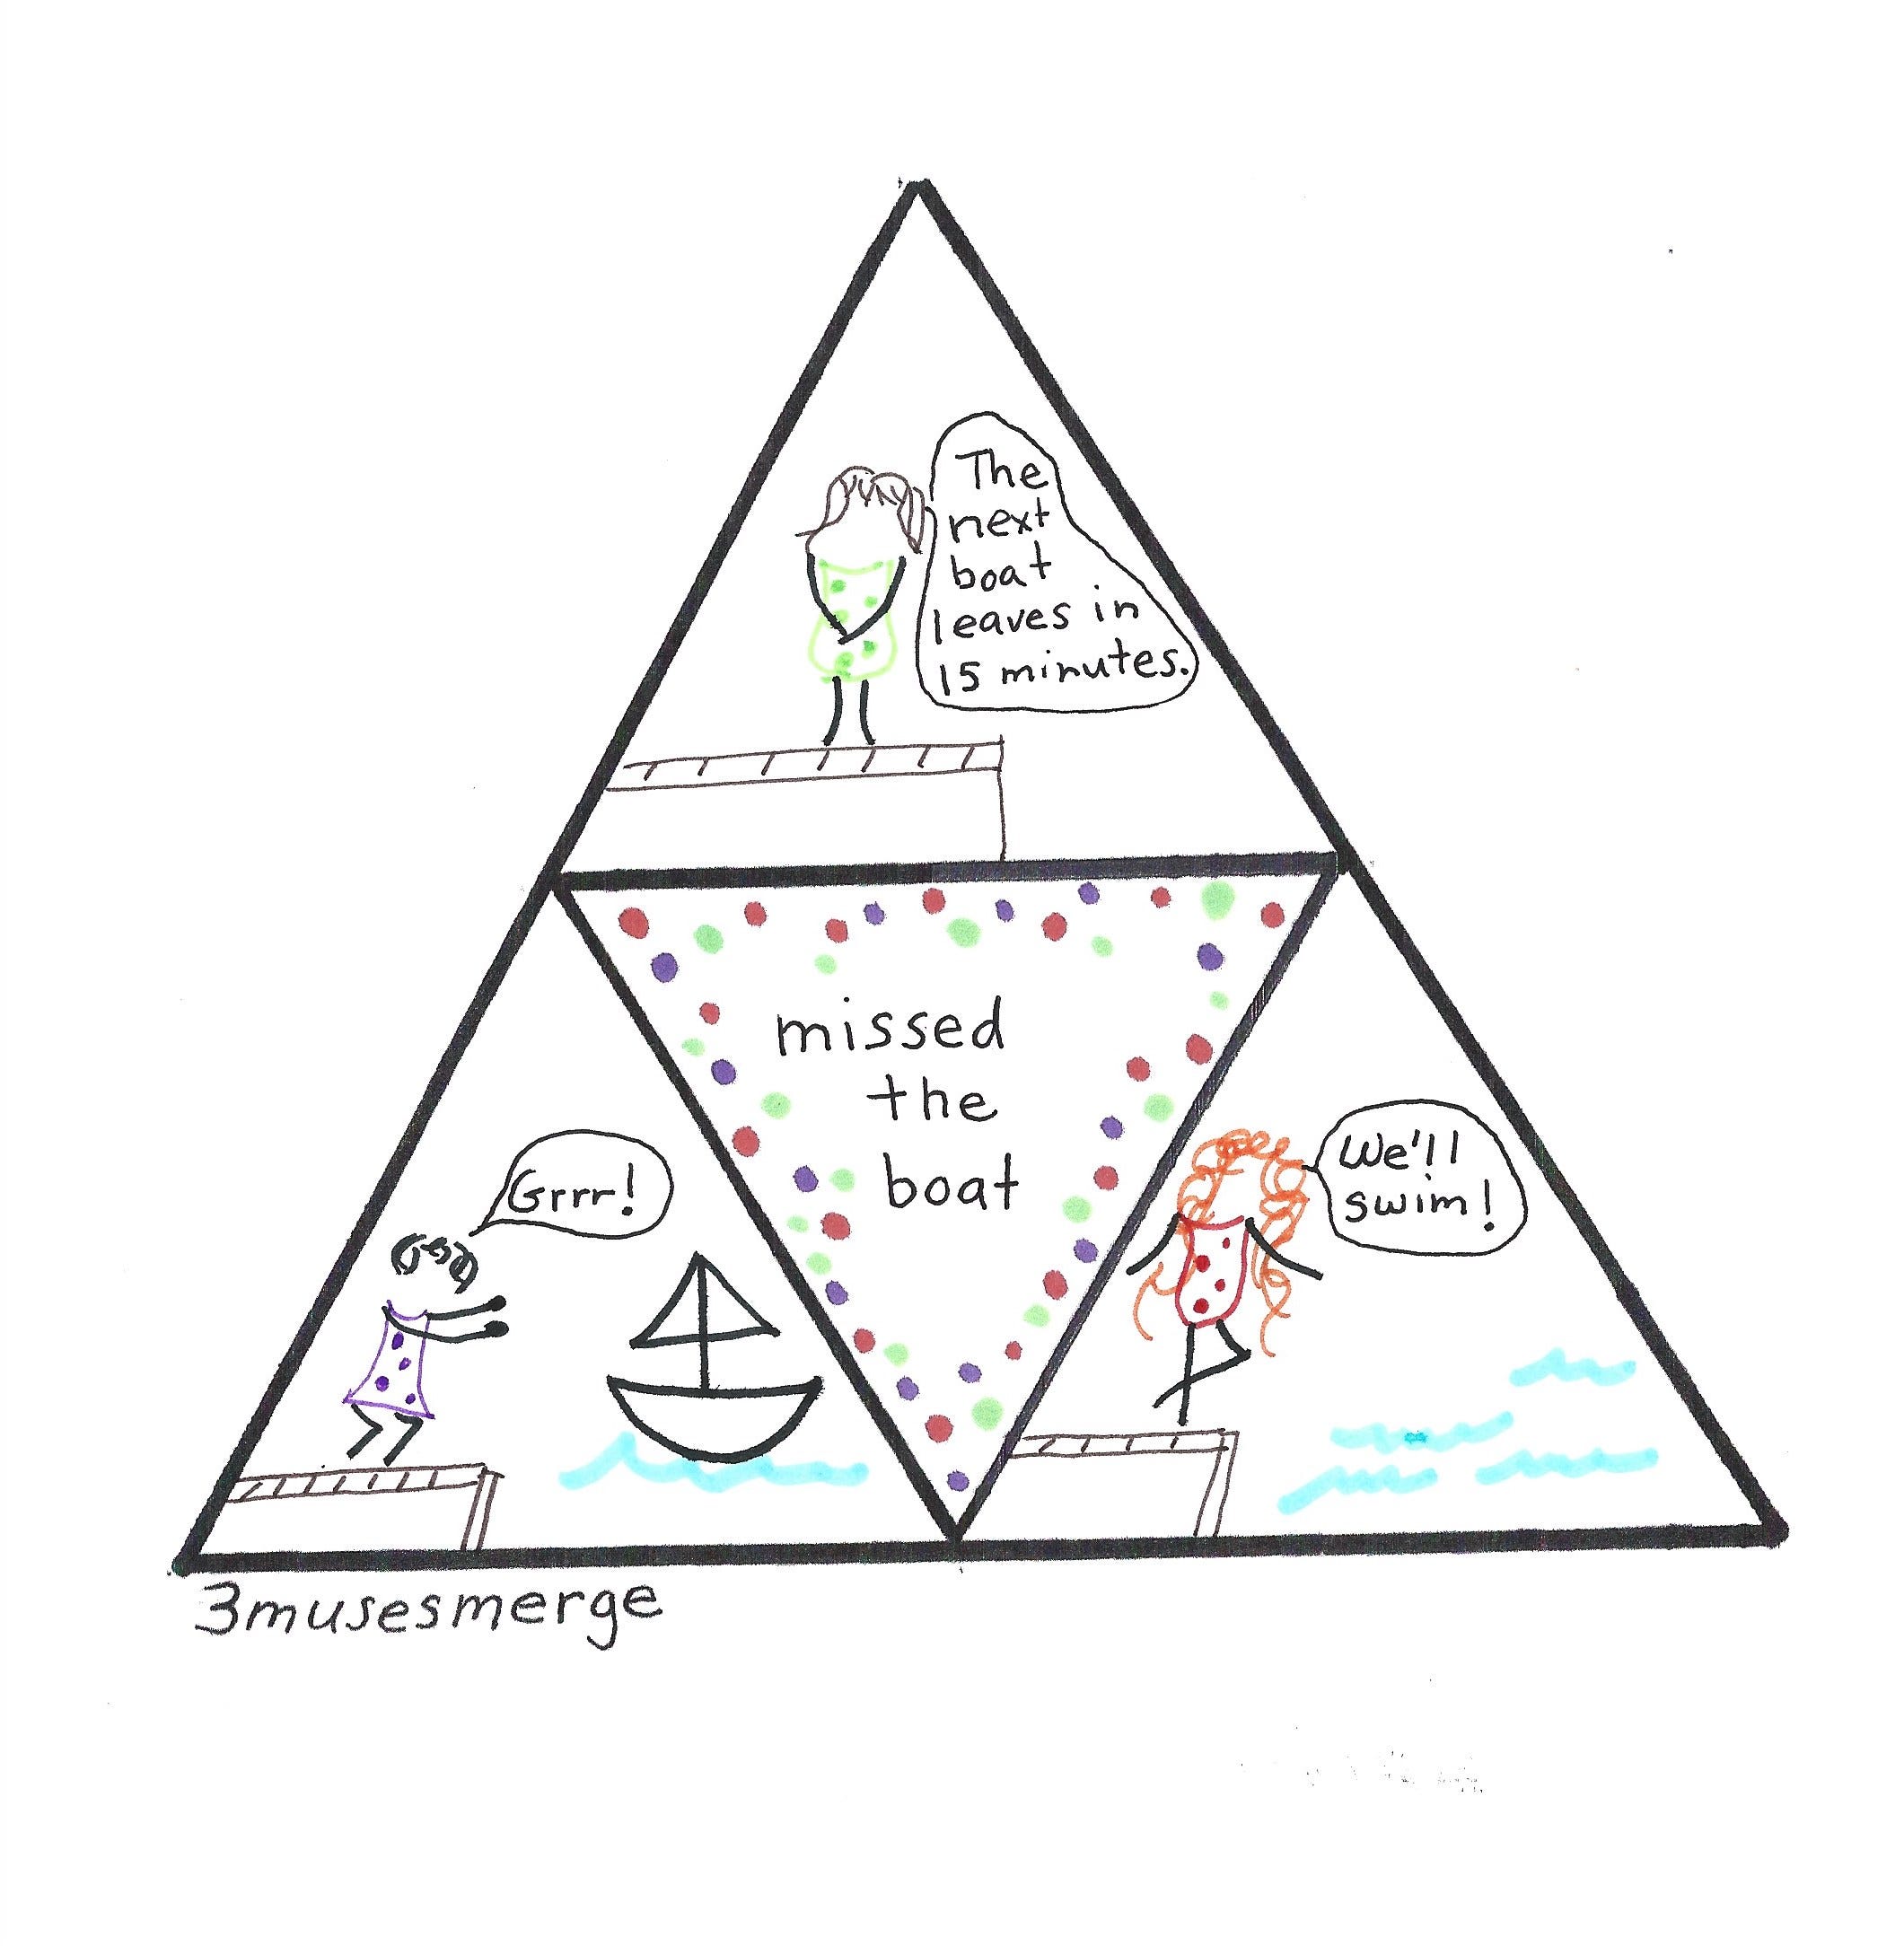 The
next
boat
leaves in
15 minutes.
missed
the
boat
Grrr!
We'll
swim!
3musesmerge